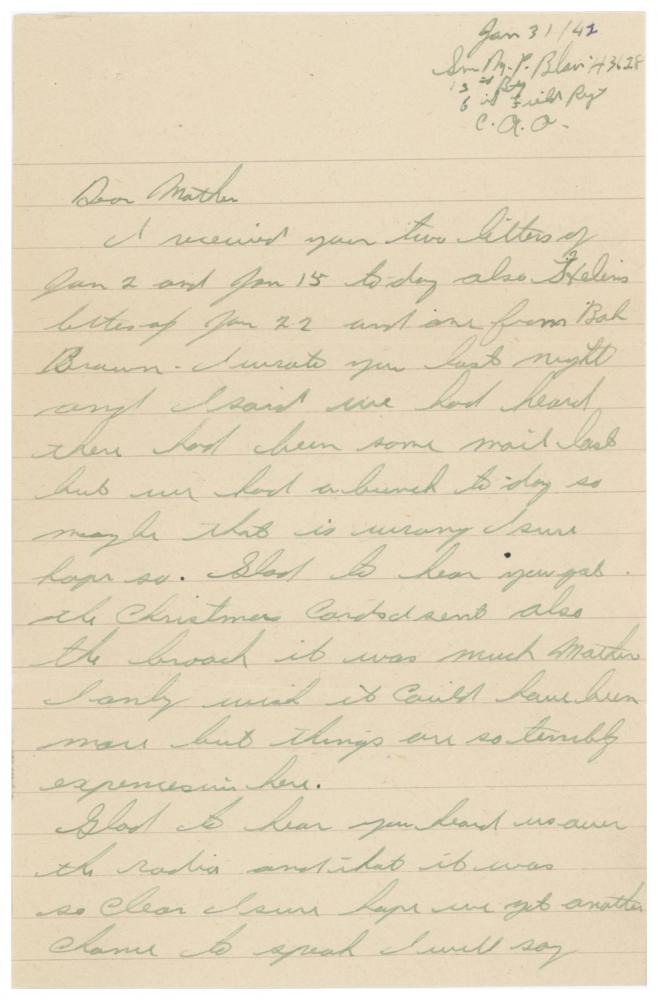 Jan 31/42
Gnr M. P. Blair H3628
13th Bty
6 th Field Rgt
C. A. O.
Dear Mother
I received your two letters of
Jan 2 and Jan 15 to day also Helens
letter of Jan 22 and one from Bob
Brown. I wrote you last night
and I said we had heard
there had been some mail lost
but we had a bunch to-day so
maybe that is wrong I sure
hope so. Glad to hear you got
the Christmas Cards I sent also
the broach it was much Mother
I only wish it could have been
more but things are so terribly
expencesive here.
Glad to hear you heard us over
the radio and that it was
so clear I sure hope we get another
chance to speak I will say